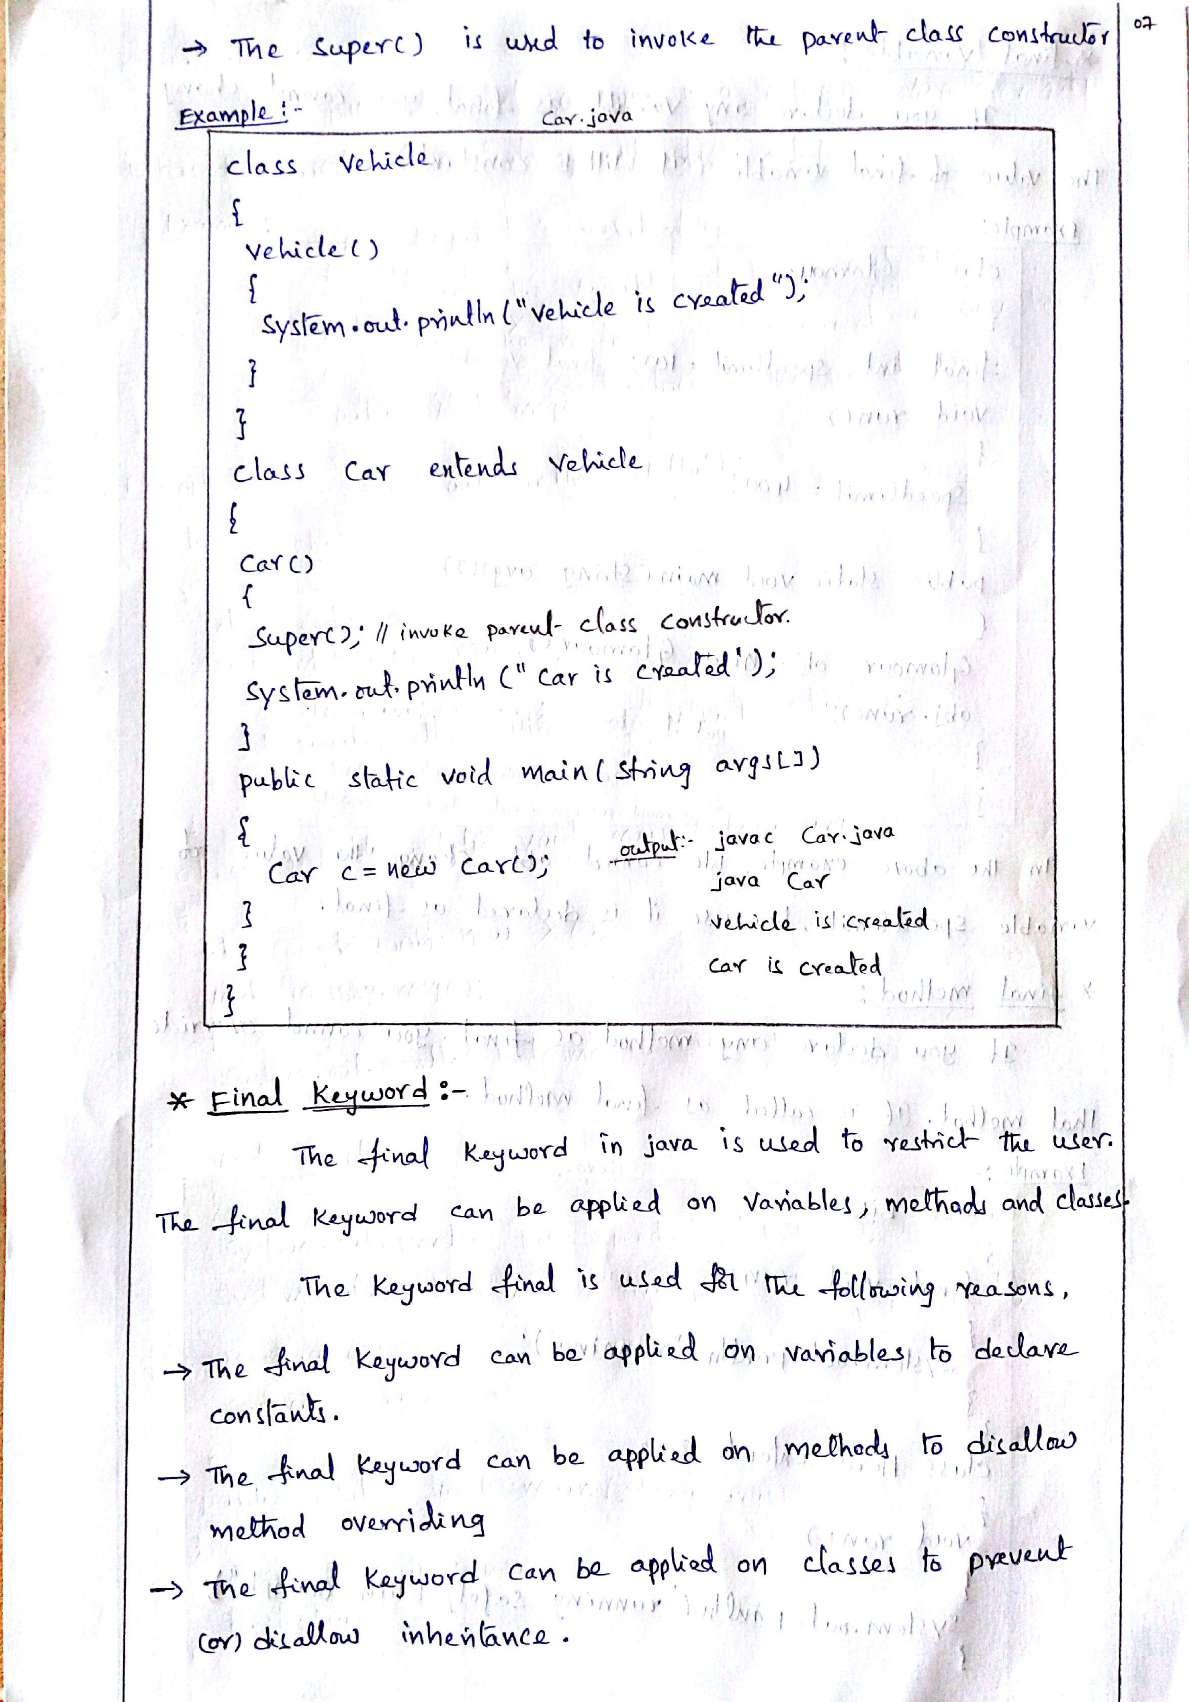 07
→ The super() is used to invoke the parent class constructor
Example :-
Car.java
class Vehicle
{
Vehicle()
{
System.out.println("vehicle is created");
}
}
class Car extends Vehicle
{
Car()
{
Super(); // invoke parent class constructor.
System.out.println (" Car is created");
}
public static void main(String args[])
{
Car c = new Car();
}
}
}
output:- javac Car.java
java Car
vehicle is created
car is created
* Final Keyword :-
The final keyword in java is used to restrict the user.
The final keyword can be applied on variables, methods and classes.
The keyword final is used for the following reasons,
→ The final keyword can be applied on variables to declare
constants.
→ The final keyword can be applied on methods to disallow
method overriding
→ The final keyword can be applied on classes to prevent
(or) disallow inheritance.